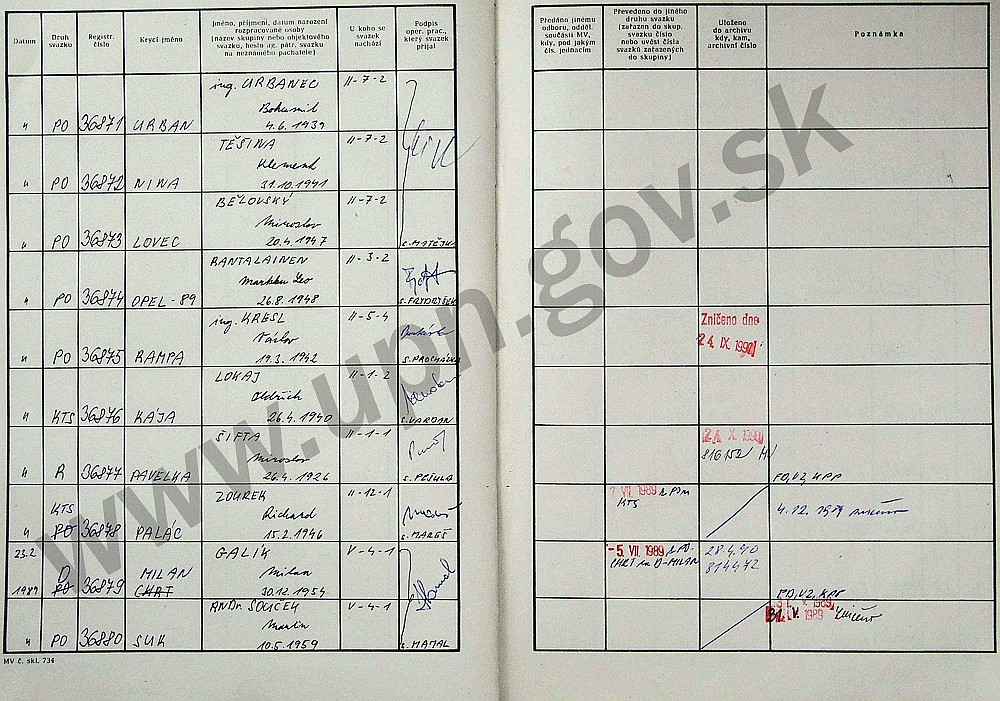 Datum
Druh svazku
Registr. číslo
Krycí jméno
Jméno, příjmení, datum narození
rozpracované osoby
(název skupiny nebo objektového
svazku, heslo ag. pátr. svazku
na neznámého pachatele)
U koho se
svazek
nachází
Podpis
oper. prac.,
který svazek
přijal
Předáno jinému
odboru, odděl.
součásti MV,
kdy, pod jakým
čís. jednacím
Převedeno do jiného
druhu svazku
(zařazen do skup.
svazku číslo
nebo uvést čísla
svazků zařazených
do skupiny)
Uloženo
do archivu
kdy, kam,
archivní číslo
Poznámka
ing. URBANEC II-7-2
Bohumil
" PO 36871 URBAN 4.6.1939
TĚŠINA II-7-2
Klement
" PO 36872 NINA 31.10.1941
BĚLOVSKÝ II-7-2
Miroslav
" PO 36873 LOVEC 20.4.1947 s. MATĚJKA
RANTALAINEN II-3-2
Markku Leo
" PO 36874 OPEL-89 26.8.1948 s. FRYDRÝŠEK
ing. KRESL II-5-4 Zničeno dne
Václav 24. IX. 1990
" PO 36875 RAMPA 19.3.1942 s. PROCHÁZKA
LOKAJ II-1-2
Oldřich
" KTS 36876 KÁJA 26.4.1940 s. VARBAN
ŠIFTA II-1-1
Miroslav 816152
" R 36877 PAVELKA 26.4.1926 s. PEŠULA FO, VZ, KPP
ZOUREK II-12-1 7. VII. 1989 z PO na
KTS Richard KTS
" PO 36878 PALÁC 15.2.1946 s. MAREŠ
23.2. GALÍK V-4-1 -5. VII. 1989 z PO- 28.4.90
D MILAN Milan CHRT na D-MILAN 814472
1989 PO 36879 CHRT 30.12.1954
ANDr. SOUČEK V-4-1 31. V. 1989 zničeno
Martin
" PO 36880 SUK 10.5.1959 s. HAMAL
MV č. skl. 734
www.upn.gov.sk